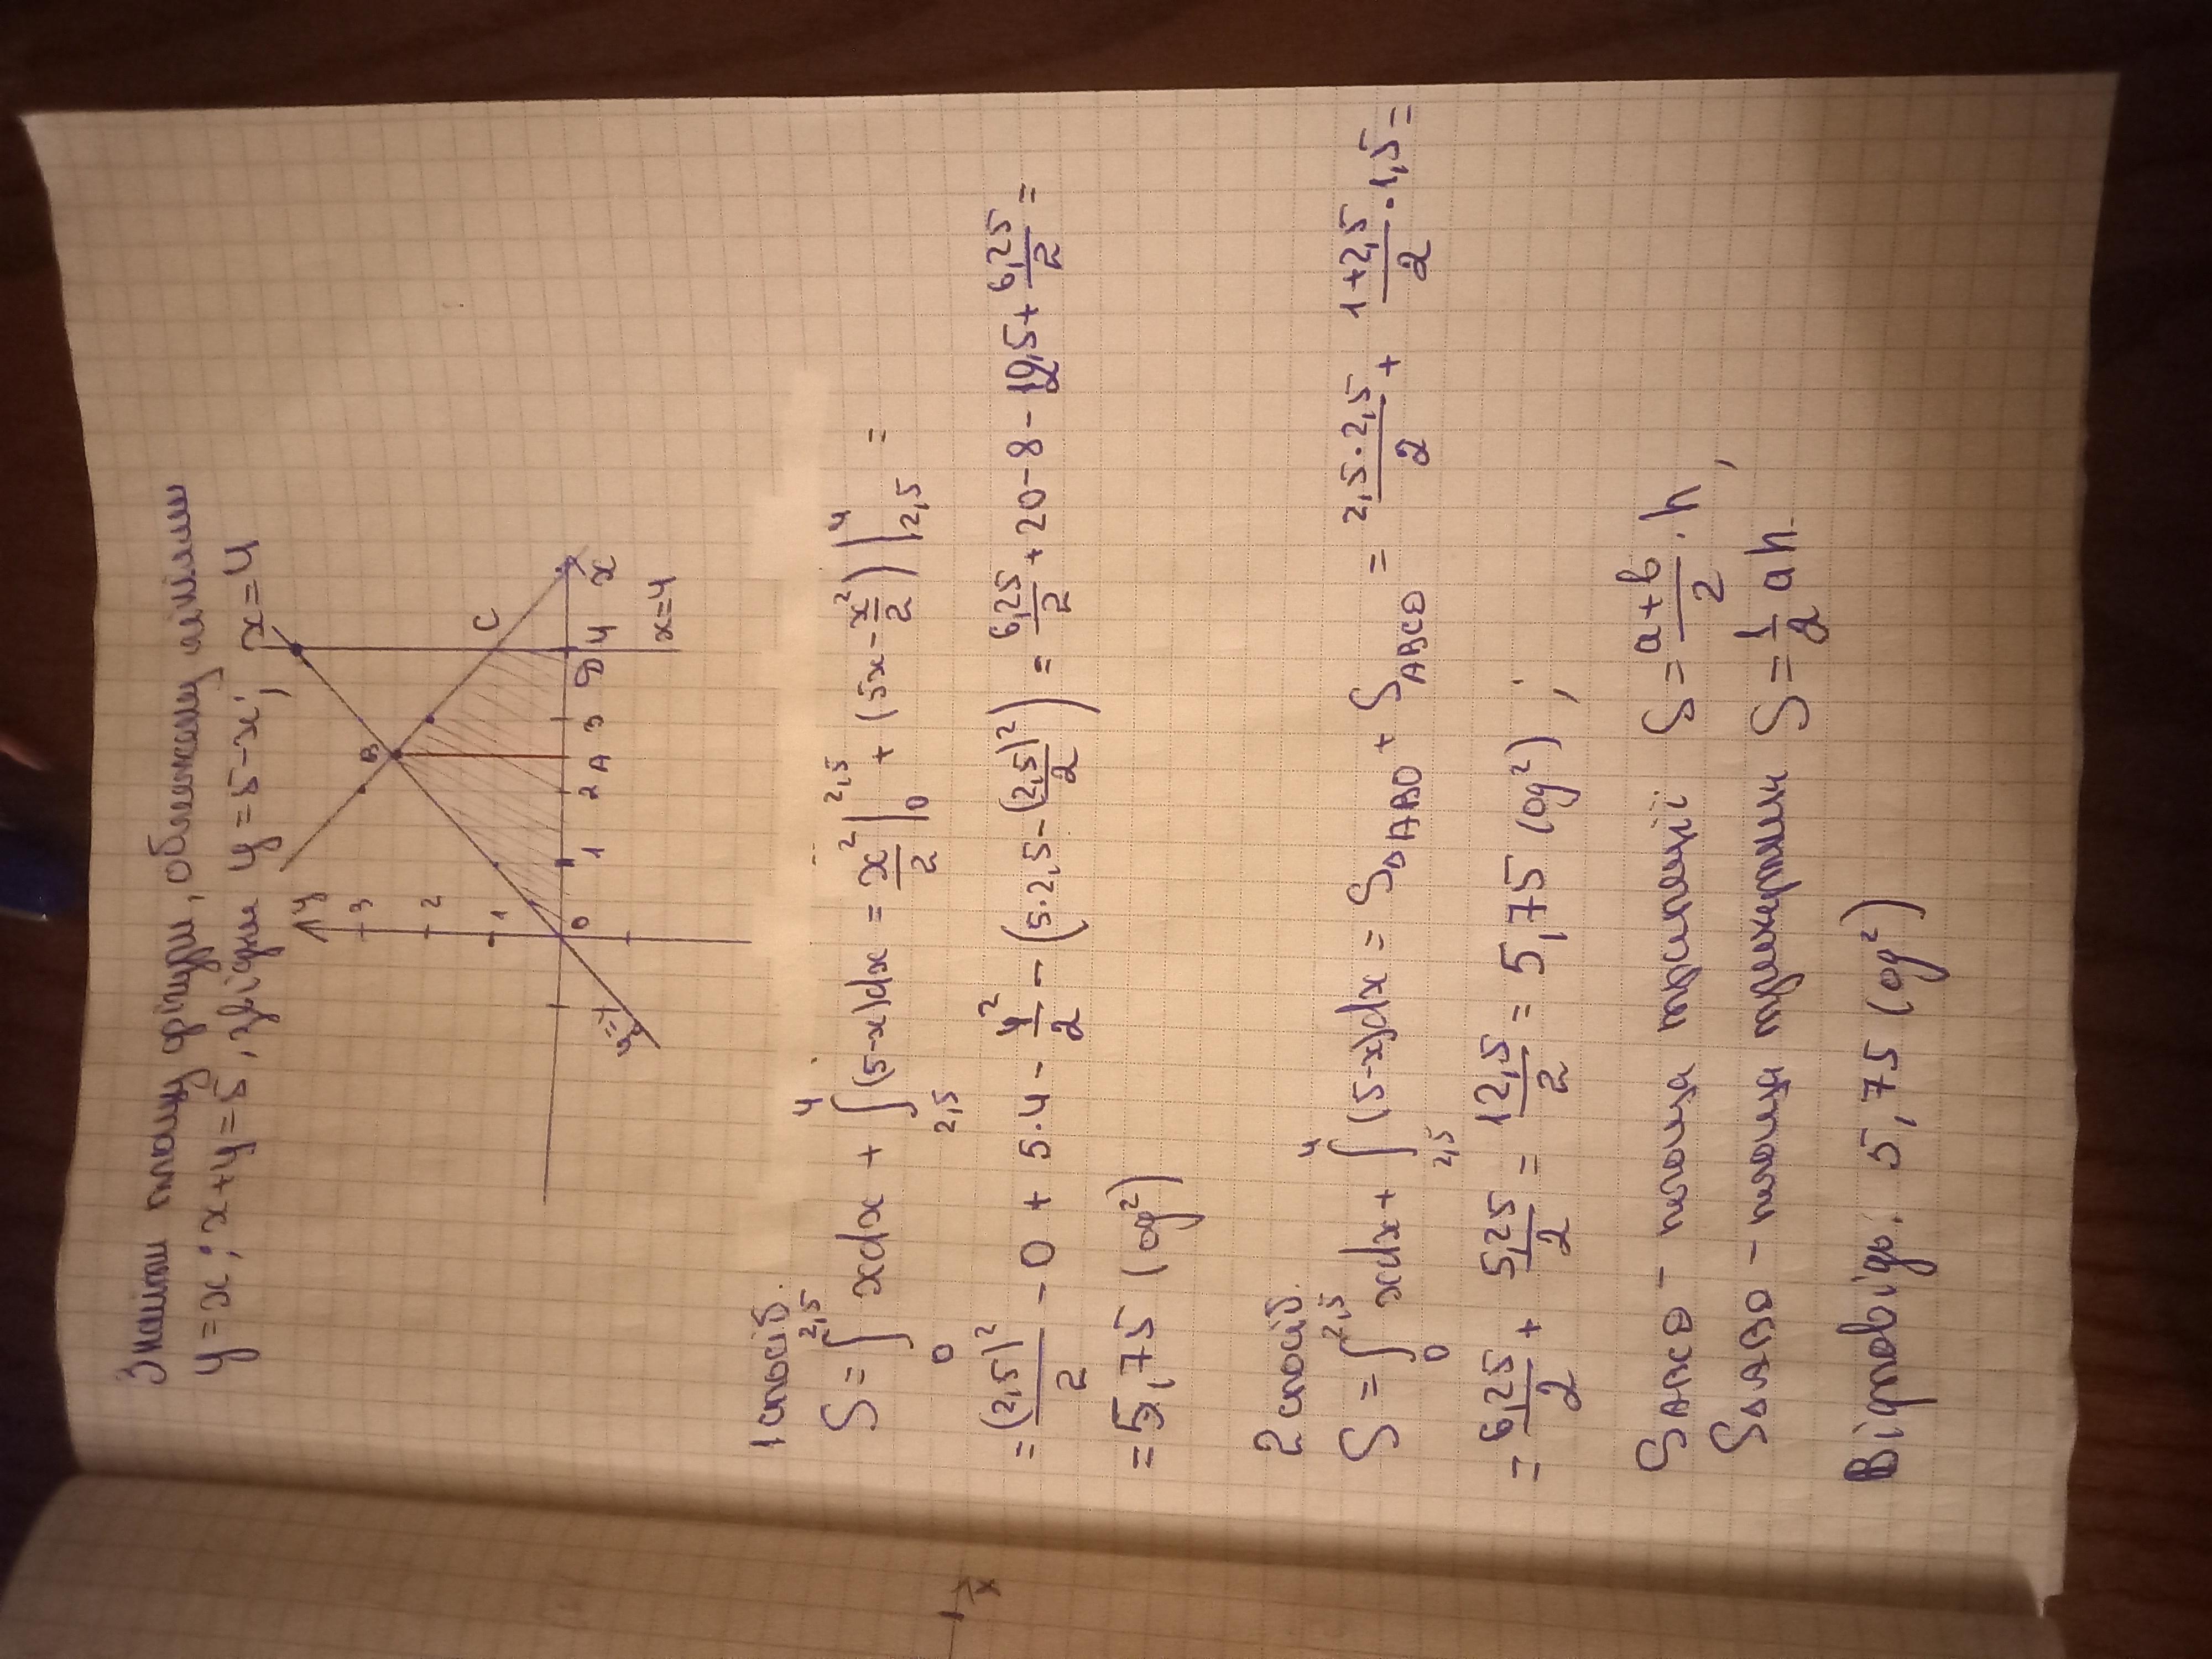 Знайти площу фігури, обмежену лініями
y = x; x+y = 5, звідки y = 5-x; x = 4
↑y
3
2
1
0
1
2
A
3
D
4
x
B
C
y=x
x=4
1 спосіб.
S = ∫₀^2,5 xdx + ∫_2,5^4 (5-x)dx = x²/2 |₀^2,5 + (5x - x²/2) |_2,5^4 =
= (2,5)²/2 - 0 + 5·4 - 4²/2 - (5·2,5 - (2,5)²/2) = 6,25/2 + 20 - 8 - 12,5 + 6,25/2 =
= 5,75 (од²)
2 спосіб.
S = ∫₀^2,5 xdx + ∫_2,5^4 (5-x)dx = S_ΔABO + S_ABCD = 2,5·2,5/2 + 1+2,5/2 · 1,5 =
= 6,25/2 + 5,25/2 = 12,5/2 = 5,75 (од²);
S_ABCD - площа трапеції S = a+b/2 · h,
S_ΔABO - площа трикутника S = 1/2 ah.
Відповідь: 5,75 (од²)
1/x